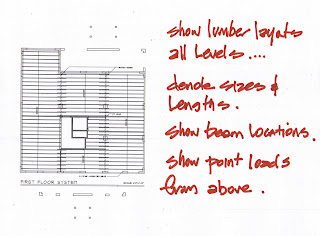 show lumber layouts
all Levels ....
denote sizes &
Lengths.
show beam locations.
show point loads
from above.
FIRST FLOOR SYSTEM